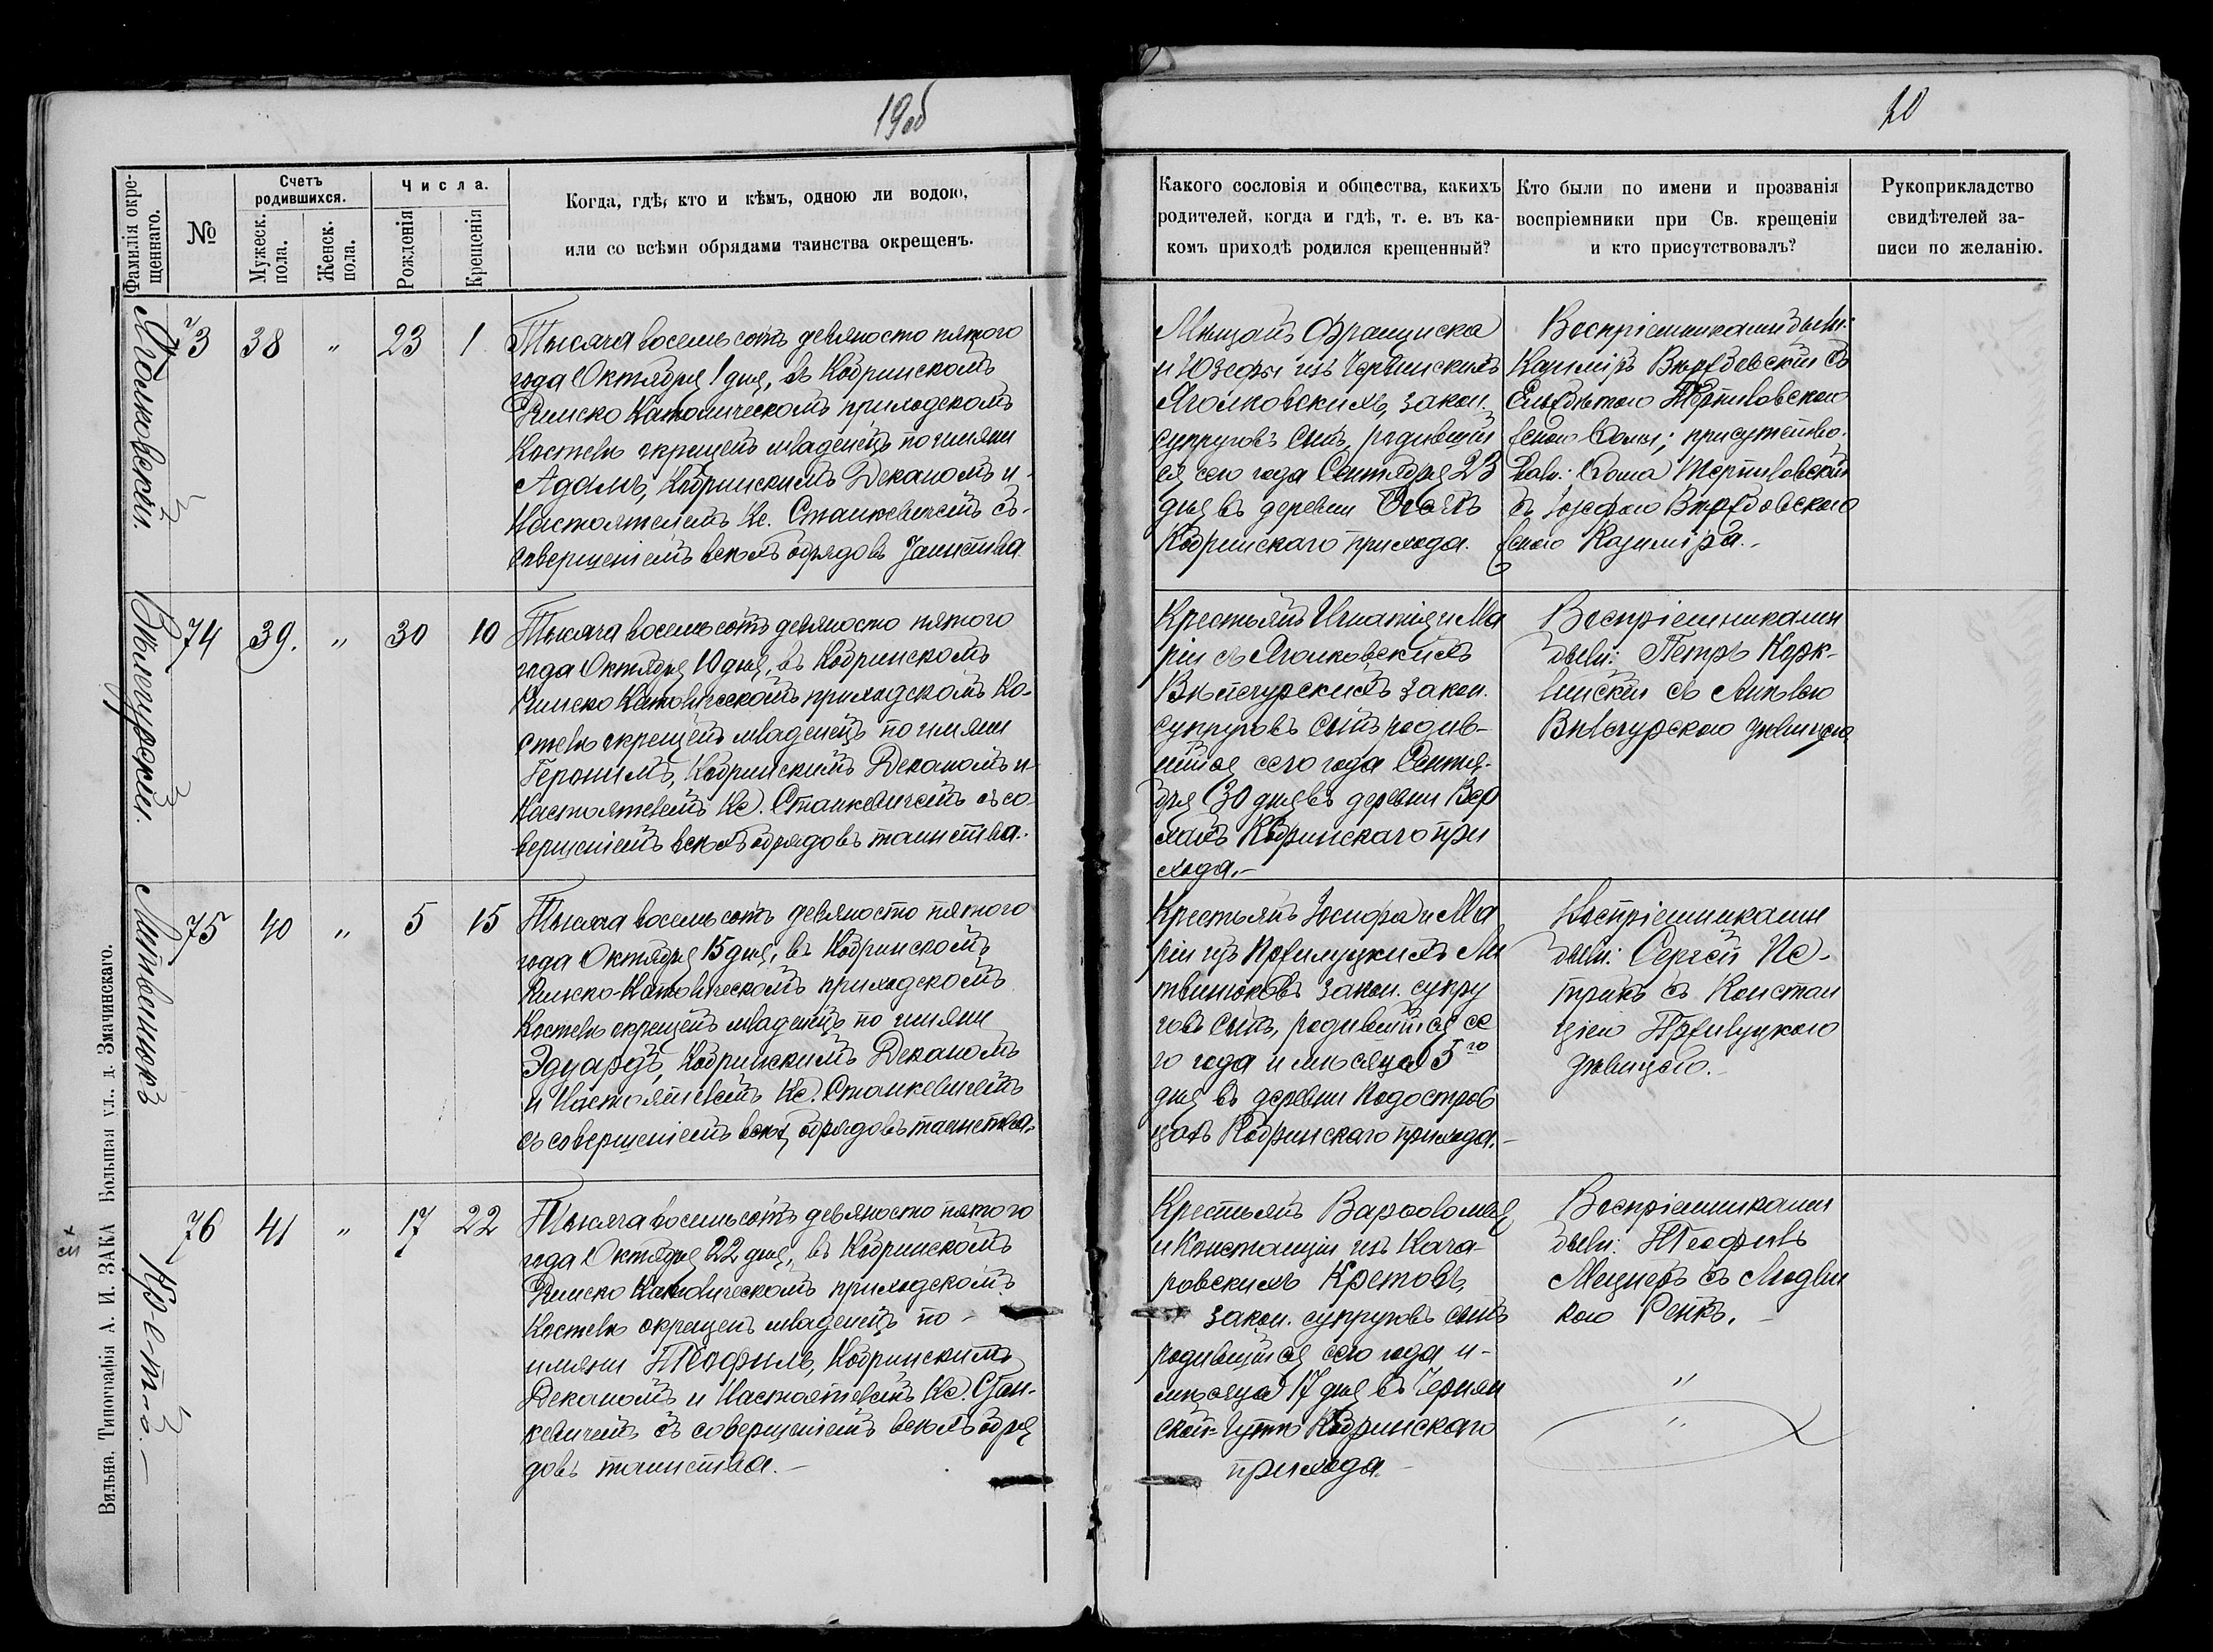 19об
20
Фамилія окре-
щеннаго.
№
Счетъ
родившихся.
Мужеск.
пола.
Женск.
пола.
Числа.
Рожденія
Крещенія
Когда, гдѣ, кто и кѣмъ, одною ли водою,
или со всѣми обрядами таинства окрещенъ.
Какого сословія и общества, какихъ
родителей, когда и гдѣ, т. е. въ ка-
комъ приходѣ родился крещенный?
Кто были по имени и прозванія
воспріемники при Св. крещеніи
и кто присутствовалъ?
Рукоприкладство
свидѣтелей за-
писи по желанію.
Яголковскій.
73 38 „ 23 1
Тысяча восемьсотъ девяносто пятого
года Октября 1 дня, въ Кобринскомъ
Римско Католическомъ приходскомъ
Костелѣ окрещенъ младенецъ по имяни
Адамъ, Кобринскимъ Деканомъ и
Настоятелемъ Кс. Станкевичемъ съ
совершеніемъ всѣхъ обрядовъ Таинства
Мѣщанъ Франциска
и Юзефы изъ
Яголковскихъ закон.
супруговъ сынъ, родившій
ся сего года Сентября 23
дня въ деревни
Кобринскаго прихода.
Воспріемниками были:
Казиміръ съ
женою Фомы; присутство-
вали: Фома
съ Юзефою
женою Казиміра.
Вѣнгурскій.
74 39. „ 30 10
Тысяча восемьсотъ девяносто пятого
года Октября 10 дня, въ Кобринскомъ
Римско Католическомъ приходскомъ Ко-
стелѣ окрещенъ младенецъ по имяни
Геронимъ, Кобринскимъ Деканомъ и
Настоятелемъ Кс. Станкевичемъ съ со-
вершеніемъ всѣхъ обрядовъ таинства.
Крестьянъ Игнатія и Ма
ріи съ Яголковскихъ
Вѣнгурскихъ закон.
супруговъ сынъ родив-
шійся сего года Сентя-
бря 30 дня въ деревни Вер
хахъ Кобринскаго при
хода.–
Воспріемниками
были: Петръ
съ
Вѣнгурскою дѣвицею
Литвинюкъ
75 40 „ 5 15
Тысяча восемьсотъ девяносто пятого
года Октября 15 дня, въ Кобринскомъ
Римско-Католическомъ приходскомъ
Костелѣ окрещенъ младенецъ по имяни
Эдуардъ, Кобринскимъ Деканомъ
и Настоятелемъ Кс. Станкевичемъ
съ совершеніемъ всѣхъ обрядовъ таинства.
Крестьянъ Іосифа и Ма
ріи изъ Пржилуцкихъ Ли
твинюковъ закон. супру
говъ сынъ, родившійся се
го года и мѣсяца 5го
дня въ деревни Подостров
цахъ Кобринскаго прихода.–
Воспріемниками
были: Сергей Пе-
трикъ съ Констан
ціею Пржилуцкою
дѣвицею.–
Кретъ.–
76 41 „ 17 22
Тысяча восемьсотъ девяносто пятого
года Октября 22 дня, въ Кобринскомъ
Римско Католическомъ приходскомъ
Костелѣ окрещенъ младенецъ по
имяни Теофилъ, Кобринскимъ
Деканомъ и Настоятелемъ Кс. Стан-
кевичемъ съ совершеніемъ всѣхъ обря
довъ таинства.–
Крестьянъ Варфоломея
и Констанціи изъ Кача-
ровскихъ Кретовъ,
закон. супруговъ сынъ
родившійся сего года и
мѣсяца 17 дня въ Чернян
ской-Гутѣ Кобринскаго
прихода.–
Воспріемниками
были: Теофилъ
Мецнеръ съ Людви
кою Репкъ.–
„
„
Вильна. Типографія А. И. ЗАКА Большая ул., д. Змачинскаго.